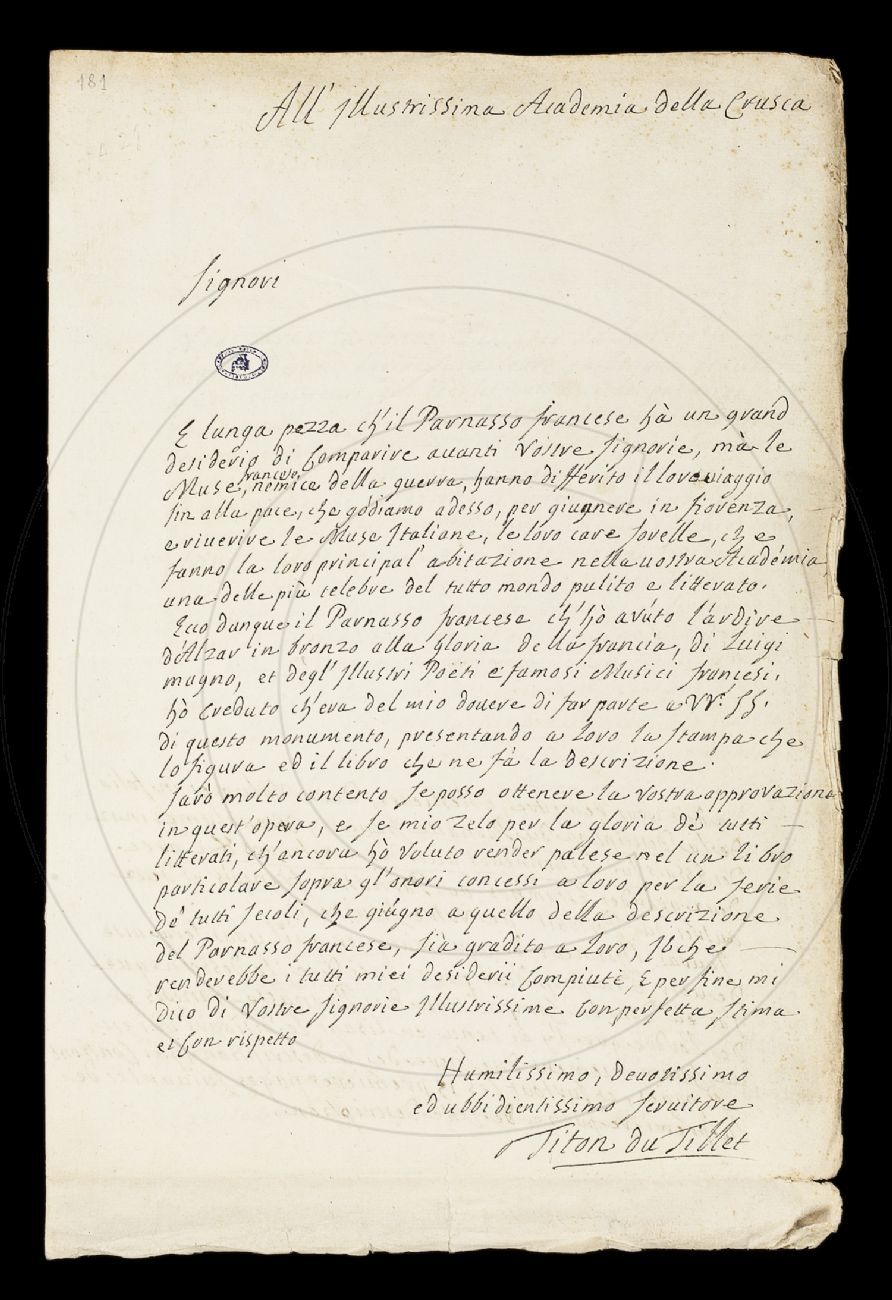 181
All' Illustrissima Academia della Crusca
Signori
E lunga pezza ch'il Parnasso francese hà un grand
desiderio di Comparire avanti Vostre Signorie, mà le
Muse francese, nemice della guerra, hanno differito il loro viaggio
fin alla pace, che gódiamo adesso, per giugnere in fiorenza,
e riuerire le Muse Italiane, le loro care sorelle, che
fanno la loro principal' abitazione nella uostra Académia
una delle più celebre del tutto mondo pulito e litterato.
Ecco dunque il Parnasso francese ch'hò avúto l'ardire
d'Alzar in bronzo alla gloria della francia, di Luigi
magno, et degl' Illustri Poëti e famosi Musici francesi.
hò Creduto ch'era del mio douere di far parte a VV.e SS.
di questo monumento, presentando a Loro la stampa che
lo figura ed il libro che ne fà la descrizione.
Sarò molto contento se posso ottenere la vostra approvazione
in quest'opera, e se mio Zelo per la gloria de' tutti
litterati, ch'ancora hò voluto render palese nel un libro
particolare sopra gl'onori concessi a loro per la serie
de' tutti secoli, che giúgno a quello della descrizione
del Parnasso francese, sia gradito a Loro, Il che
renderebbe i tutti miei desiderii Compiuti, E per fine mi
dico di Vostre Signorie Illustrissime Con perfetta stima
et Con rispetto
Humilissimo, Deuotissimo
ed ubbidientissimo seruitore
Titon du Tillet